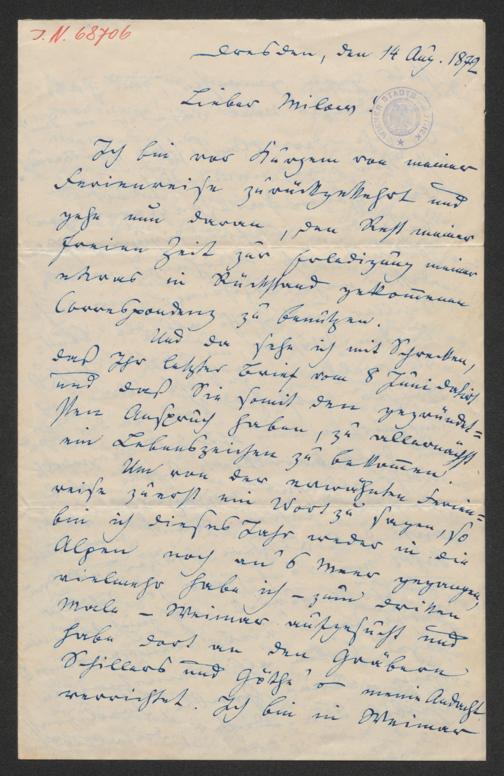 J. N. 68706
Dresden, den 14 Aug. 1872
Lieber Milow!
WIENER STADTBIBLIOTHEK
Ich bin vor Kurzem von meiner
Ferienreise zurückgekehrt und
gehe nun daran, den Rest meiner
freien Zeit zur Erledigung meiner
etwas in Rückstand gekommenen
Correspondenz zu benützen.
Und da sehe ich mit Schrecken,
daß Ihr letzter Brief vom 8 Juni datirt
und daß Sie somit den gegründet=
sten Anspruch haben, zu allernächst
ein Lebenszeichen zu bekommen.
Um von der erwähnten Ferien=
reise zuerst ein Wort zu sagen, so
bin ich dieses Jahr weder in die
Alpen noch an's Meer gegangen,
vielmehr habe ich – zum dritten
Male – Weimar aufgesucht und
habe dort an den Gräbern
Schillers und Göthe's meine Andacht
verrichtet. Ich bin in Weimar